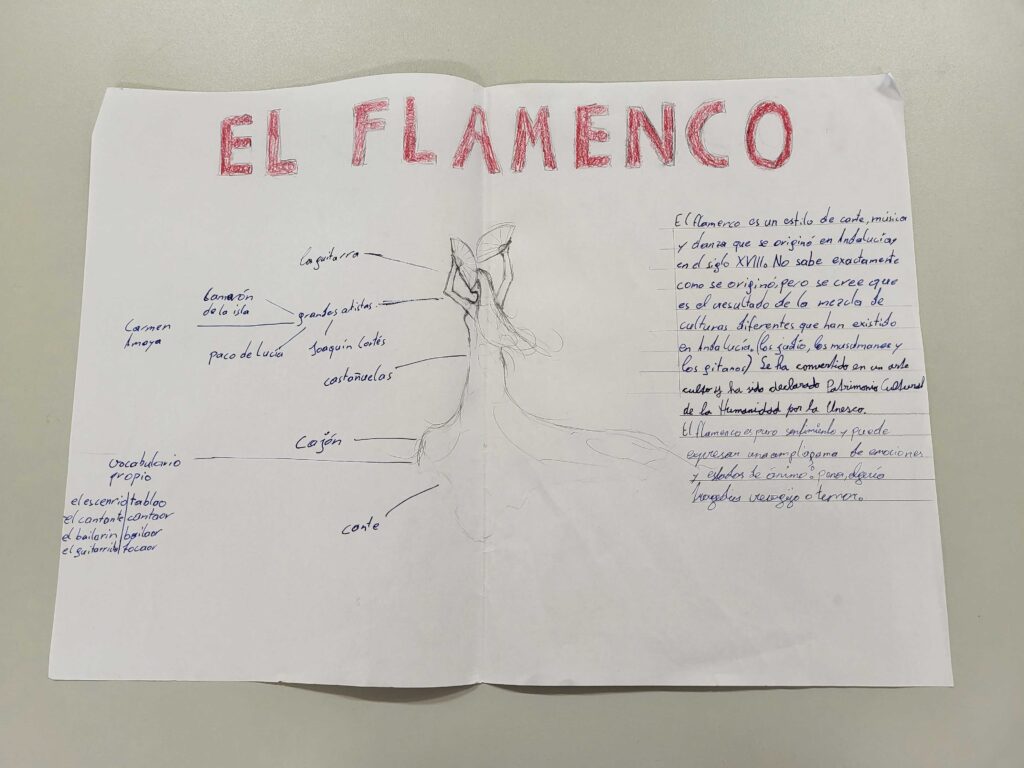 EL FLAMENCO
la guitarra
Camarón
de la isla
grandes artistas
Carmen
Amaya
paco de lucía
Joaquín Cortés
castañuelas
Cajón
vocabulario
propio
el escenrio tablao
el cantante cantaor
el bailarin bailaor
el guitarrista tocaor
cante
El flamenco es un estilo de cante, música
y danza que se originó en Andalucía,
en el siglo XVIII. No sabe exactamente
como se originó, pero se cree que
es el resultado de la mezcla de
culturas diferentes que han existido
en Andalucía. (los judío, los musulmanes y
los gitanos) Se ha convertido en un arte
culto y ha sido declarado Patrimonio Cultural
de la Humanidad por la Unesco.
El flamenco es puro sentimiento y puede
expresar una ampla gama de emociones
y estados de ánimo: pena, alegría
o terror.